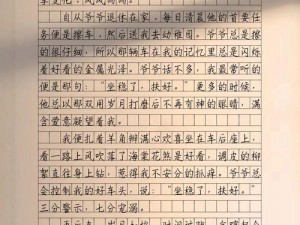 自从爷爷退休在家,每日清晨他的首要任
务便是擦车,然后送我去幼稚园。爷爷总是擦
的很仔细,所以那辆车在我的记忆里总是闪烁
着好看的金属光泽。爷爷话不多,我最常听的
便是那句:“坐稳了,扶好。”更多的时候,
他总以那双用岁月打磨后不再有神的眼睛,满
含爱意凝望着我。
我便扎着羊角辫满心欢喜坐在车后座上,
看一路上风吹落了海棠花煞是好看,调皮的柳
絮直往身上钻,惹得我不安分的抓痒。爷爷总
会控制我的车把头,说:“坐稳了,扶好。”
三分警示,七分宠溺。